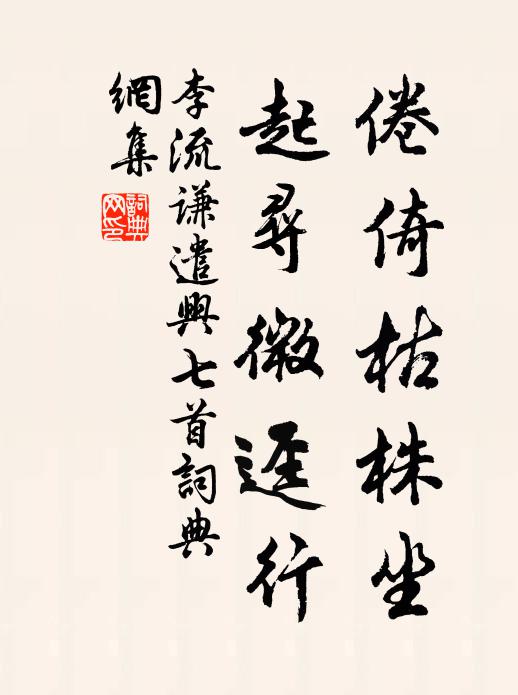 倦倚枯株坐
起尋微逕行
李流谦遣興七首詞典
網集
詞典
网印